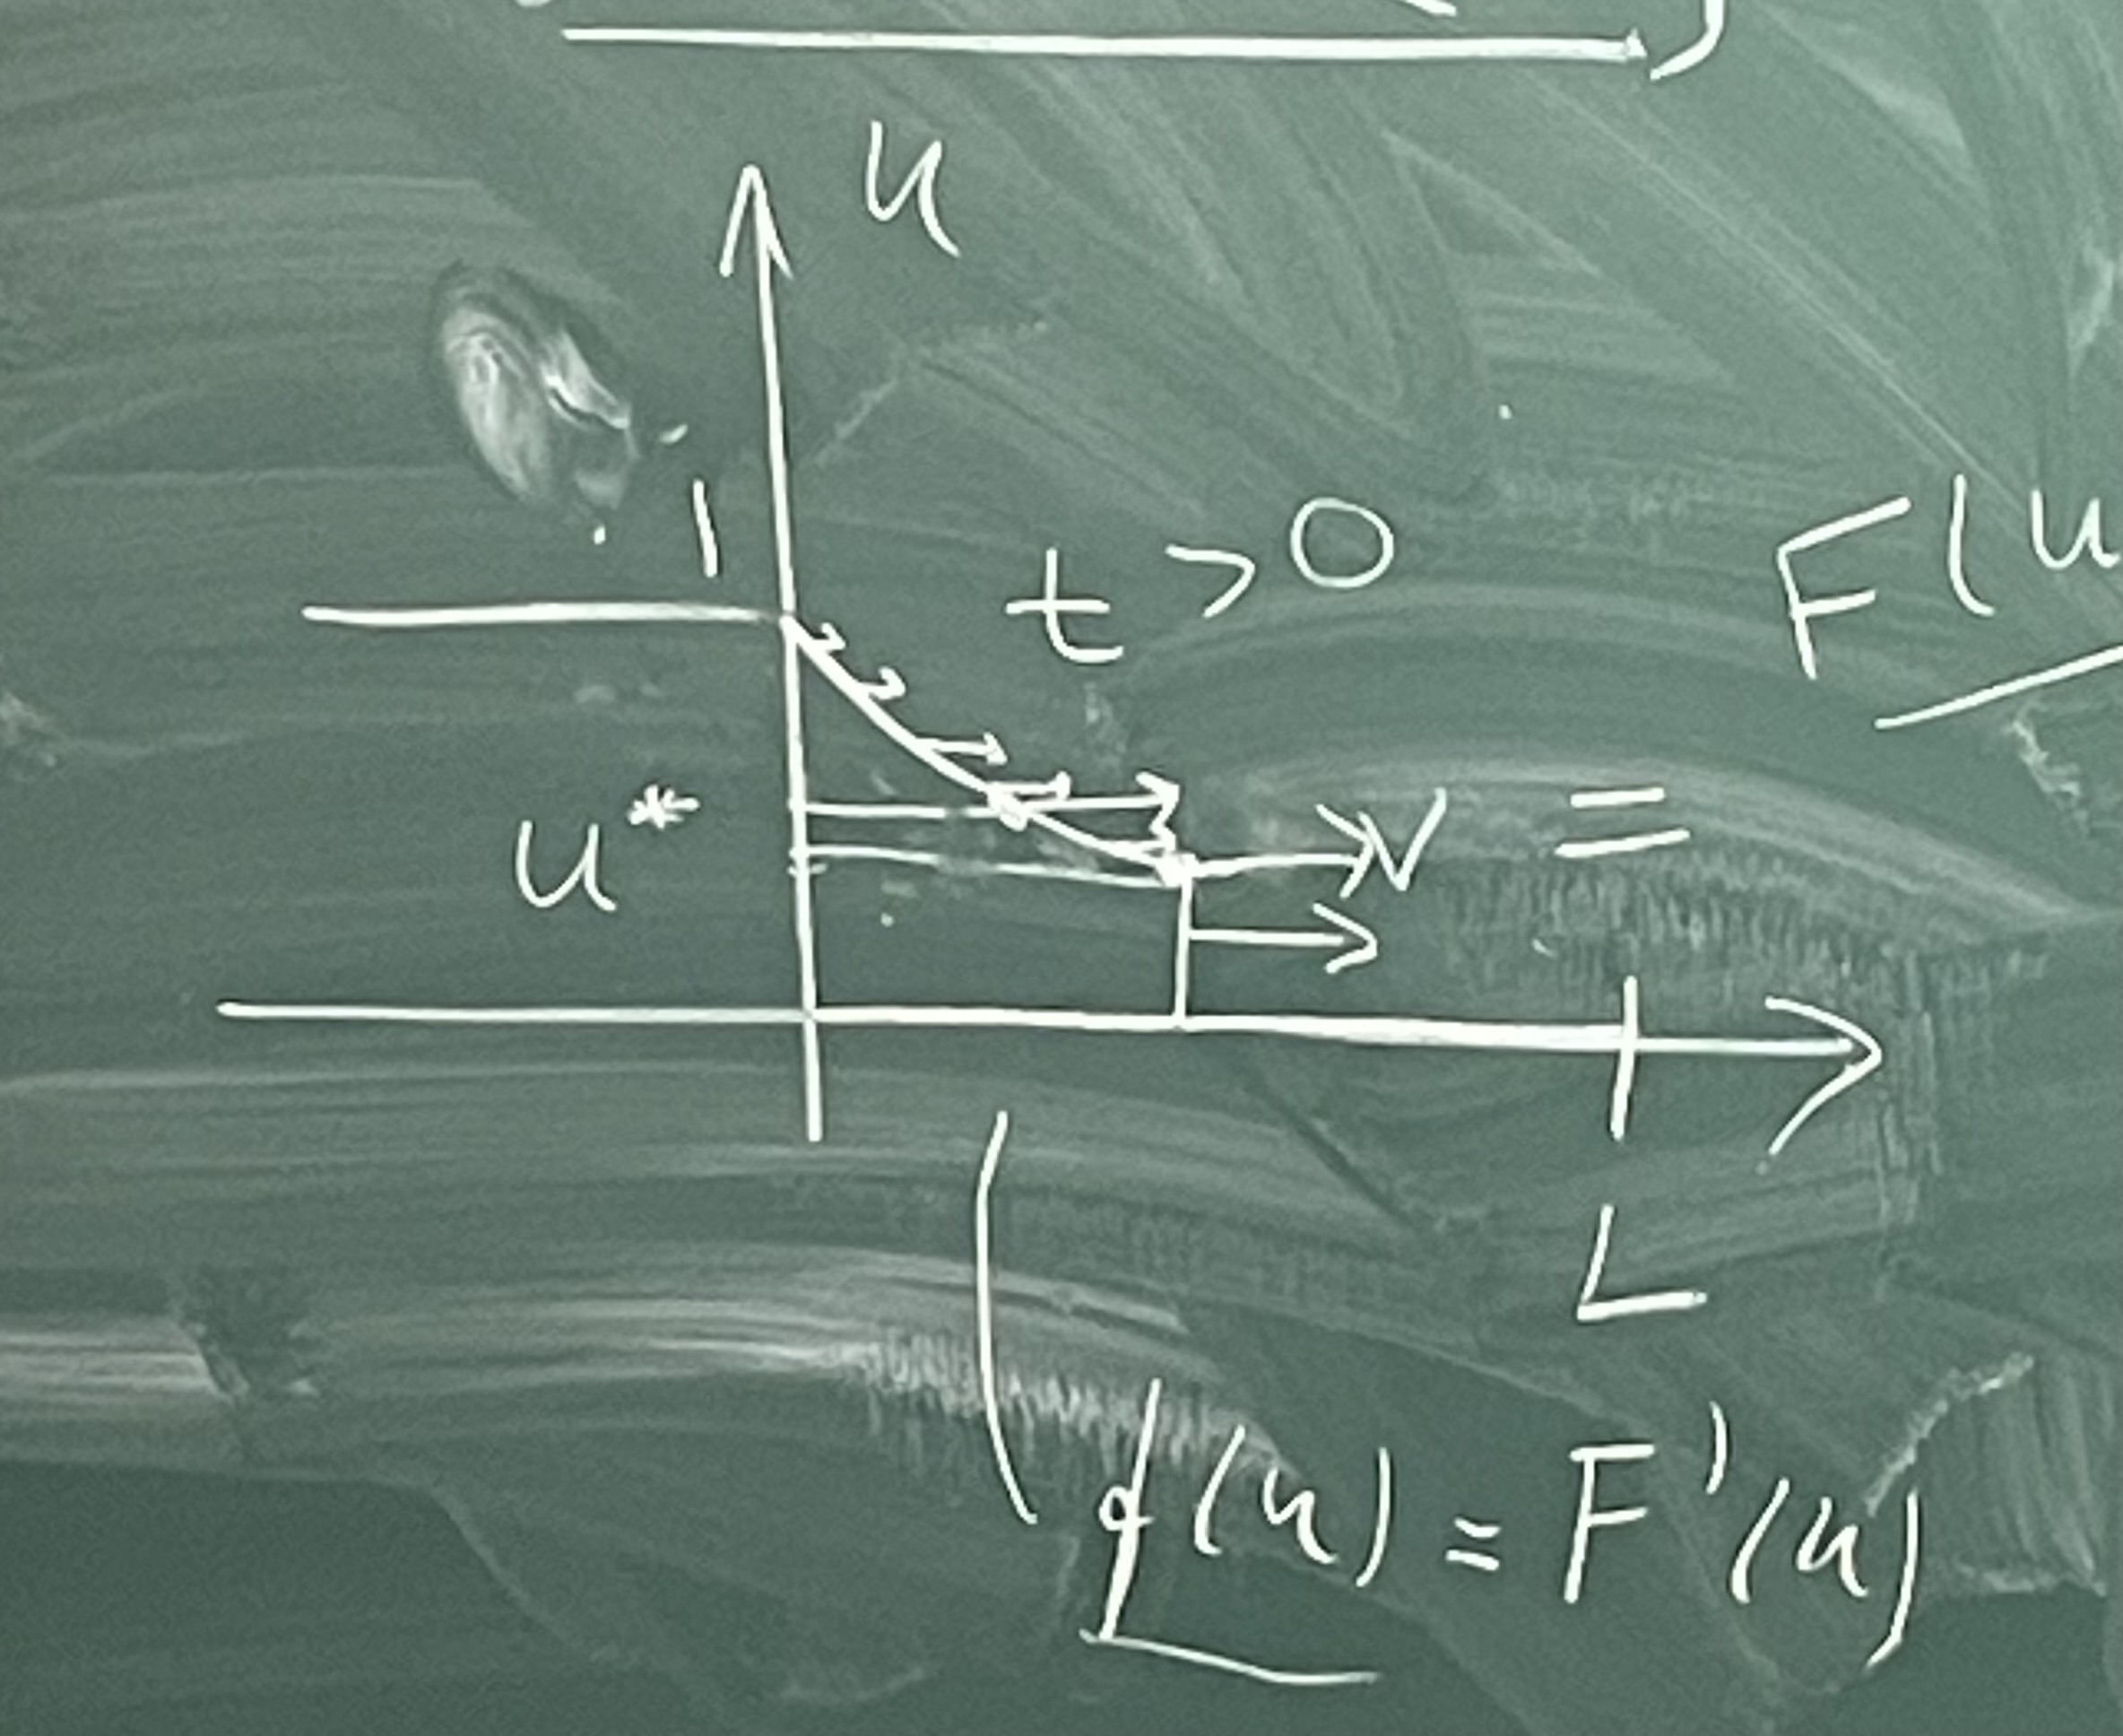 u
1
t > 0
F(u
u*
V =
L
f(u) = F'(u)